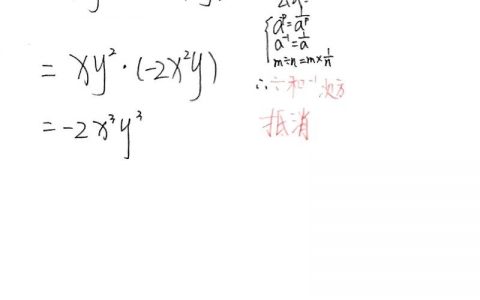 = xy²·(-2x²y)
= -2x³y³
a⁻ᵖ=1/aᵖ
a⁻¹=1/a
m÷n=m×1/n
∴÷和⁻¹次方
抵消